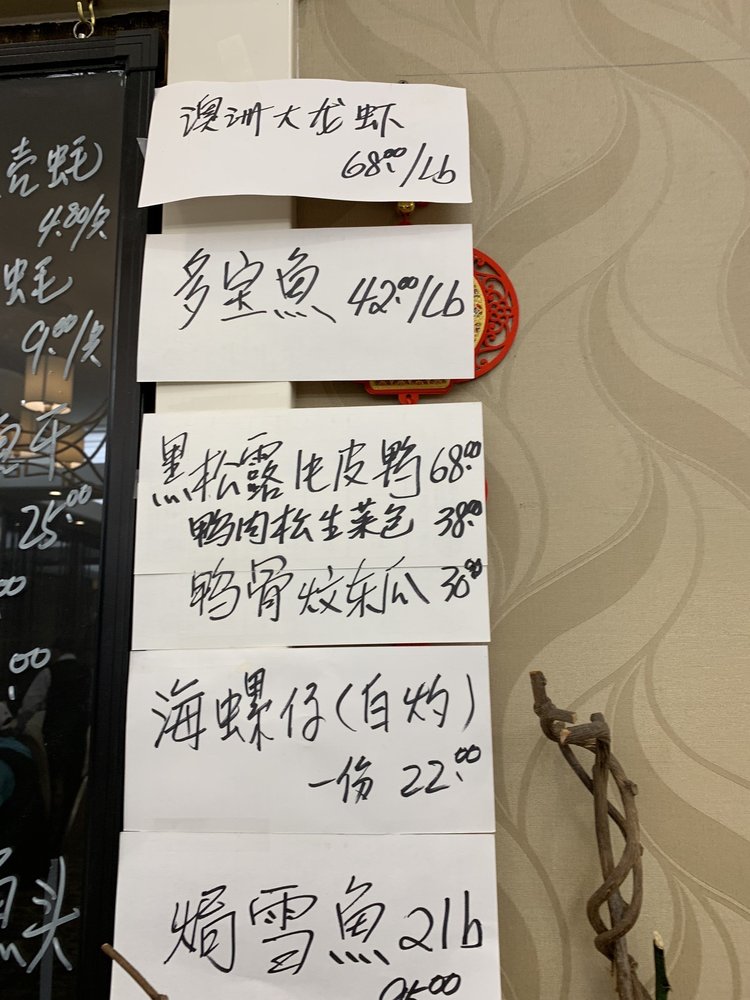 壳蚝
4.80/只
蚝
9.00/只
25.00
.00
头
澳洲大龙虾
68.00/Lb
多宝魚 42.00/Lb
黑松露片皮鸭 68.00
鸭肉松生菜包 38.00
鸭骨炆东瓜 30.00
海螺仔(白灼)
一份 22.00
焗雪魚 2lb